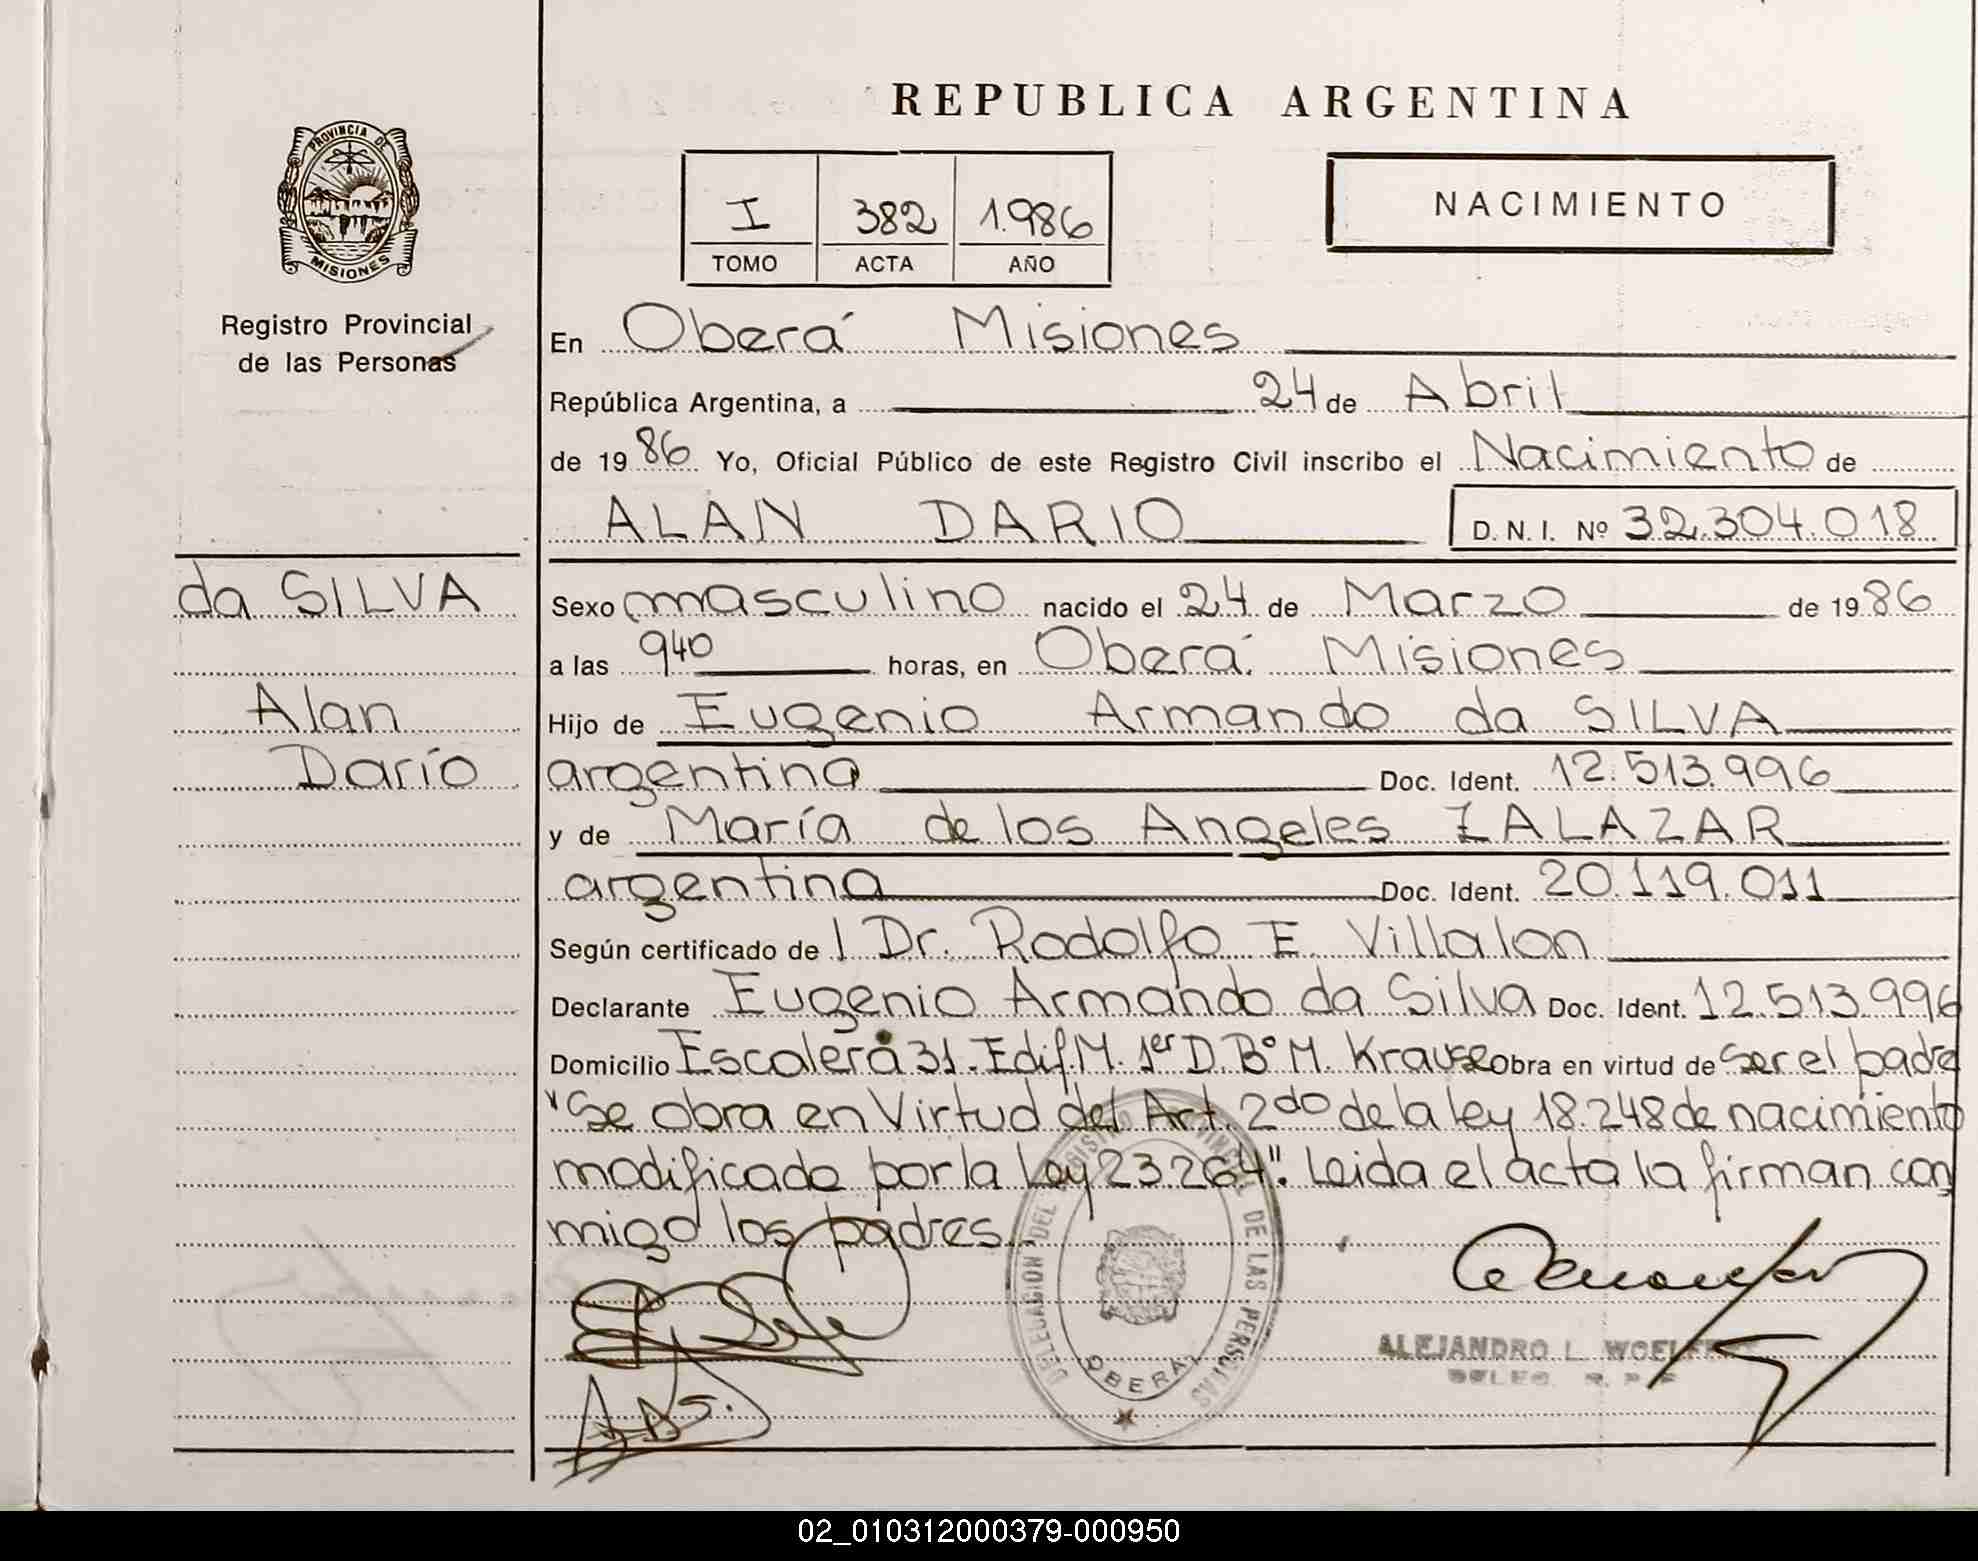 REPUBLICA ARGENTINA
PROVINCIA DE
MISIONES
Registro Provincial
de las Personas
I 382 1.986
TOMO ACTA AÑO
NACIMIENTO
En Oberá Misiones
República Argentina, a 24 de Abril
de 19 86 Yo, Oficial Público de este Registro Civil inscribo el Nacimiento de
ALAN DARIO D. N. I. Nº 32.304.018
da SILVA
Alan
Darío
Sexo masculino nacido el 24 de Marzo de 19 86
a las 940 horas, en Oberá Misiones
Hijo de Eugenio Armando da SILVA
argentina Doc. Ident. 12.513.996
y de María de los Angeles ZALAZAR
argentina Doc. Ident. 20.119.011
Según certificado de l Dr. Rodolfo E. Villalon
Declarante Eugenio Armando da Silva Doc. Ident. 12.513.996
Domicilio Escalera 31. Edif. M. 1er D. Bº M. Krause Obra en virtud de Ser el padre
"Se obra en Virtud del Art. 2do de la ley 18.248 de nacimiento
modificado por la Ley 23.264". Leida el acta la firman con
migo los padres.
DELEGACION DEL REGISTRO PROVINCIAL DE LAS PERSONAS
OBERA
ALEJANDRO L.
02_010312000379-000950